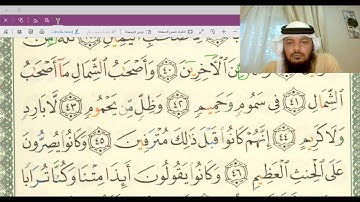 وَثُلَّةٌ مِّنَ الْآخِرِينَ ﴿٤٠﴾ وَأَصْحَابُ الشِّمَالِ مَا أَصْحَابُ
الشِّمَالِ ﴿٤١﴾ فِي سَمُومٍ وَحَمِيمٍ ﴿٤٢﴾ وَظِلٍّ مِّن يَحْمُومٍ ﴿٤٣﴾ لَّا بَارِدٍ
وَلَا كَرِيمٍ ﴿٤٤﴾ إِنَّهُمْ كَانُوا قَبْلَ ذَٰلِكَ مُتْرَفِينَ ﴿٤٥﴾ وَكَانُوا يُصِرُّونَ
عَلَى الْحِنثِ الْعَظِيمِ ﴿٤٦﴾ وَكَانُوا يَقُولُونَ أَئِذَا مِتْنَا وَكُنَّا تُرَابًا